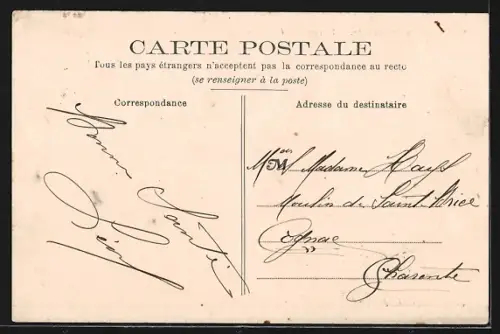 CARTE POSTALE
Tous les pays étrangers n'acceptent pas la correspondance au recto
(se renseigner à la poste)
Correspondance
Bonne Santé
Adresse du destinataire
M Madame Hays
Moulin de Saint-Brice
Cognac
Charente